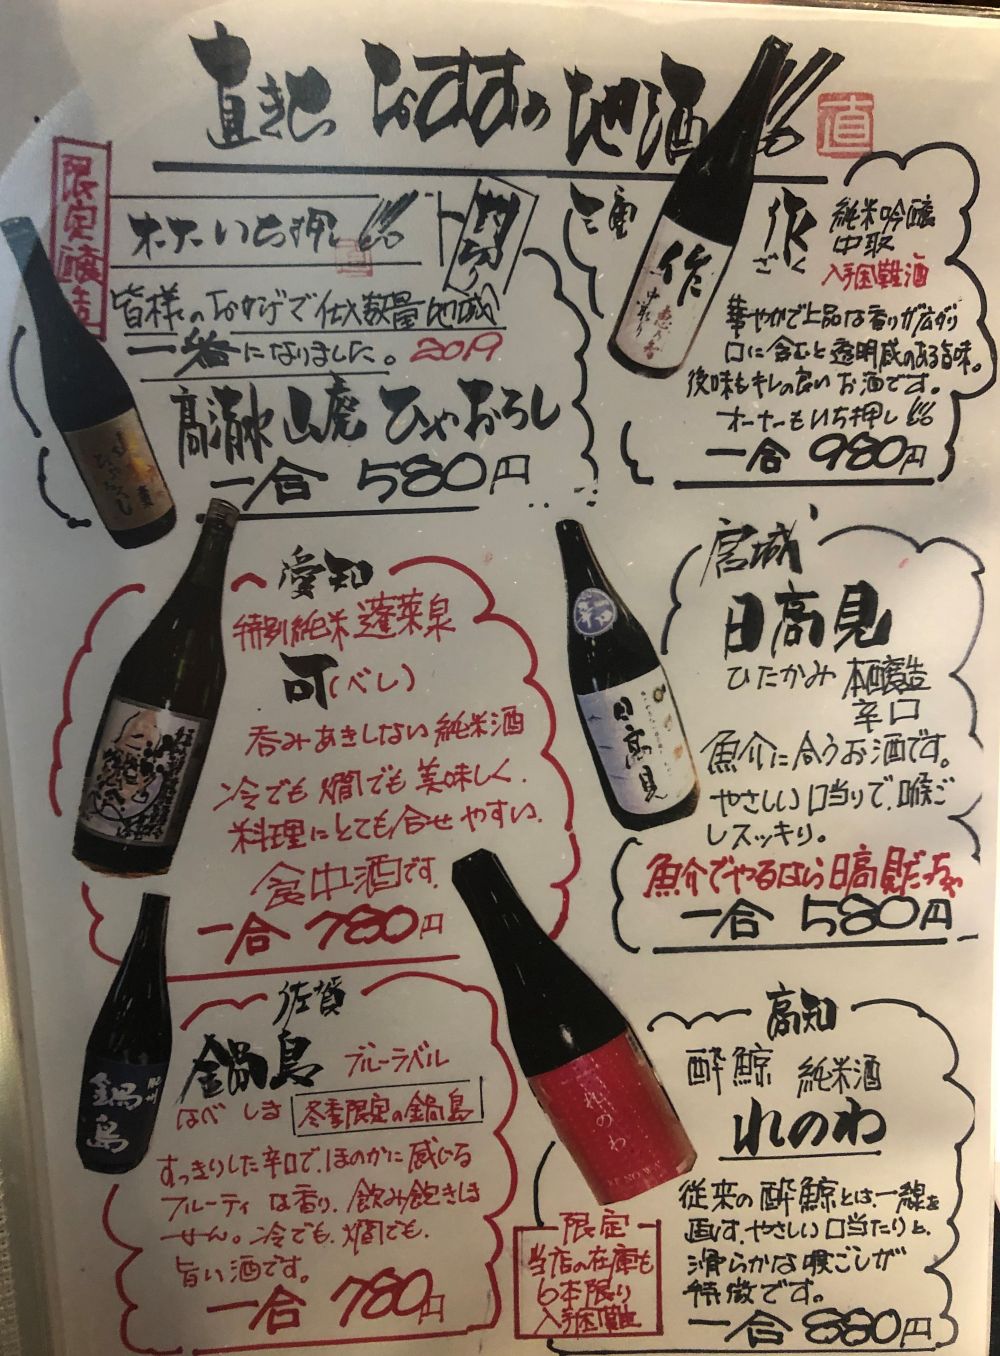 直きの おすすめ地酒
直
限定醸造
オーナーいち押し
皆様のおかげで仕入数量地域
一番になりました。2019
高清水 山廃 ひやおろし
一合 580円
三重
作
ごく
純米吟醸
中取
入手困難酒
華やかで上品な香りが広がり
口に含むと透明感のある旨味。
後味もキレの良いお酒です。
オーナーもいち押し
一合 980円
作
中取り
恵乃智
愛知
特別純米 蓬莱泉
可(べし)
呑みあきしない純米酒
冷でも燗でも美味しく、
料理にとても合せやすい、
食中酒です。
一合 780円
宮城
日高見
ひたかみ 本醸造
辛口
魚介に合うお酒です。
やさしい口当りで、喉ご
しスッキリ。
魚介でやるなら日高見だっちゃ
一合 580円
日高見
佐賀
鍋島 ブルーラベル
なべしま 冬季限定の鍋島
すっきりした辛口で、ほのかに感じる
フルーティな香り、飲み飽きしま
せん。冷でも、燗でも、
旨い酒です。
一合 780円
鍋島
高知
酔鯨 純米酒
れのわ
従来の酔鯨とは、一線を
画す、やさしい口当たりと、
滑らかな喉ごしが
特徴です。
一合 880円
限定
当店の在庫も
6本限り
入手困難
れのわ